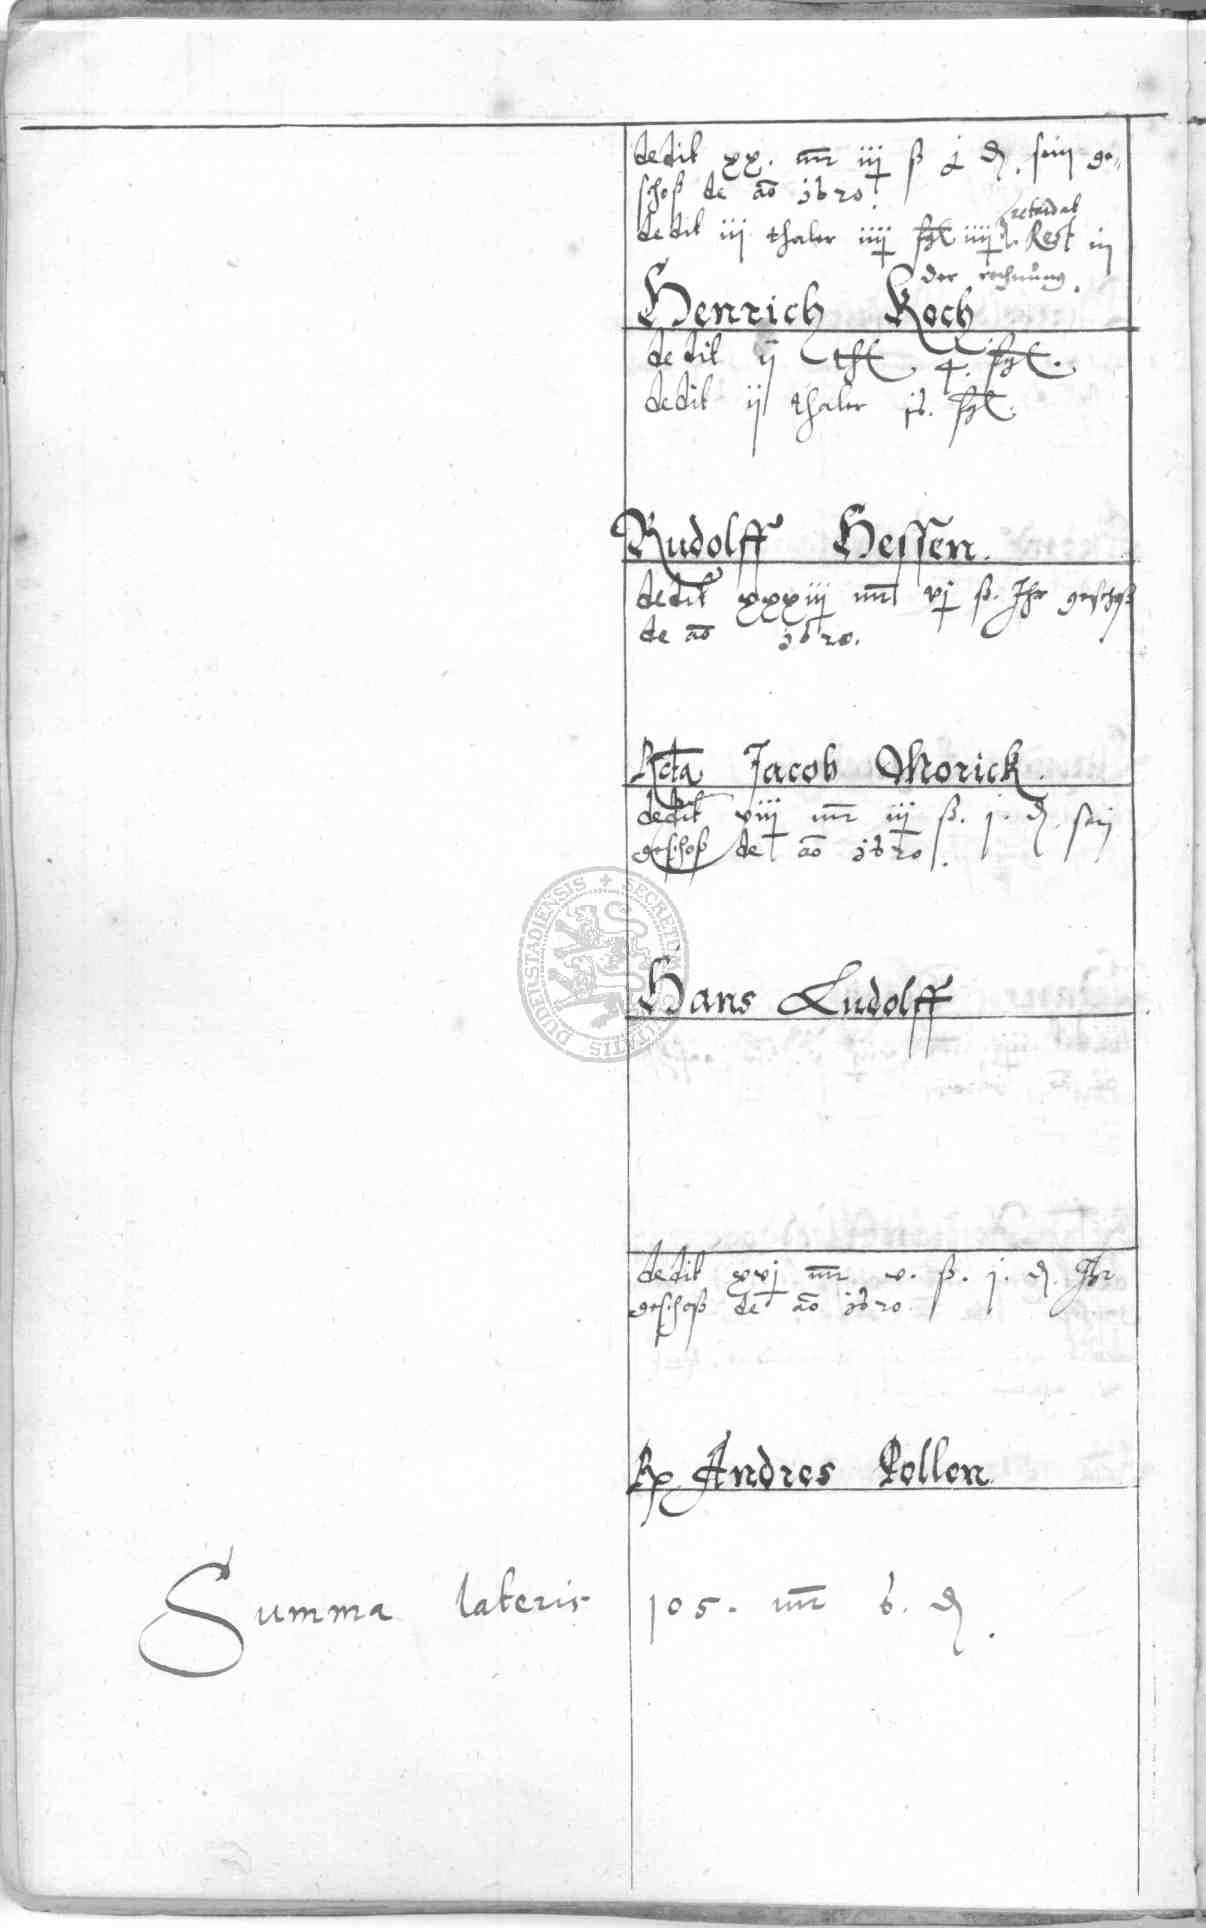 dedit xx. mr iij ß j d. sein ge-
schoß de ao 1620.
dedit iij thaler iiij sgl iiij d. retardat Rest in
der rechnung.
Henrich Koch
dedit ij thl 4. sgl.
dedit ij thaler 16. sgl.
Rudolff Hessen.
dedit xxxiij mr vj ß. Ihr geschoß
de ao 1620.
Rcta Jacob Morick
dedit viij mr iij ß. j. d. sein
geschoß de ao 1620.
Hans Ludolff
dedit xvj mr v. ß. j. d. Ihr
geschoß de ao 1620.
Andres Pollen
Summa lateris 105. mr 6. d.
DUDERSTADIENSIS SECRETUM CIVITATIS